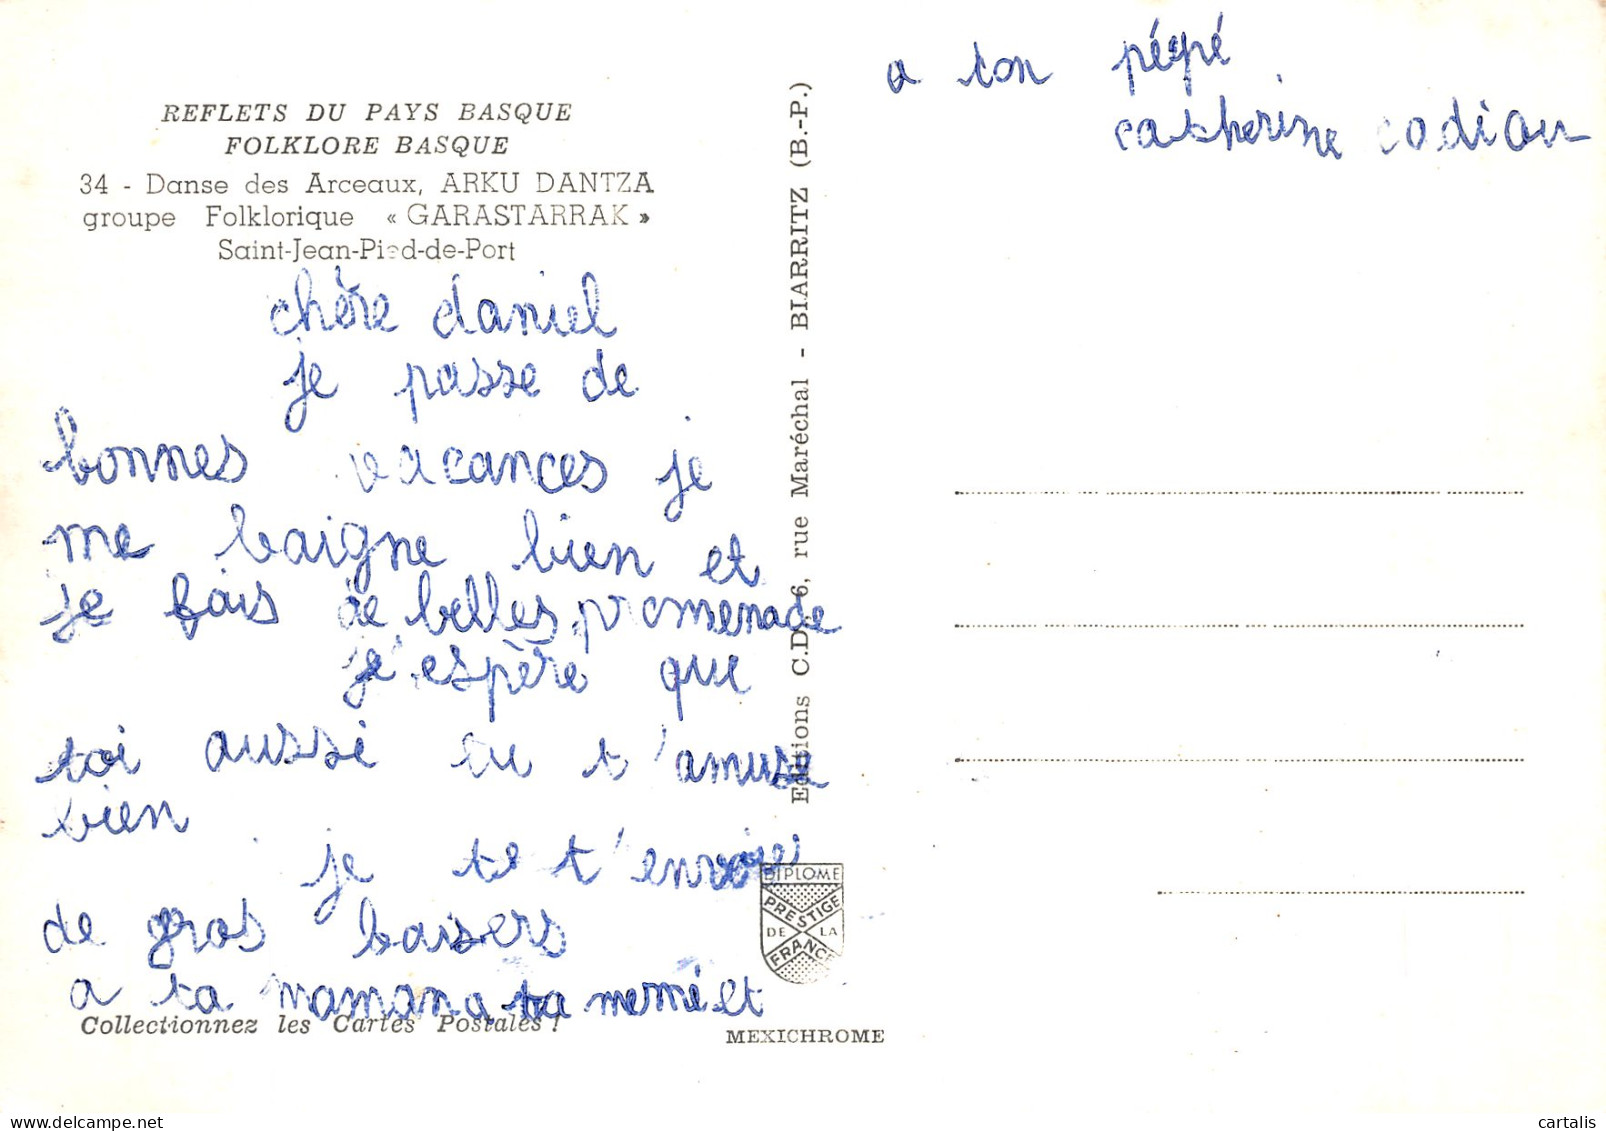 REFLETS DU PAYS BASQUE
FOLKLORE BASQUE
34 - Danse des Arceaux, ARKU DANTZA
groupe Folklorique « GARASTARRAK »
Saint-Jean-Pied-de-Port
chère daniel
je passe de
bonnes vacances je
me baigne bien et
je fais de belles promenade
j'espère que
toi aussi tu t'amuse
bien
je te t'envoie
de gros baisers
a ta maman a ta memé et
a ton pépé
catherine codiou
Editions C.D. 6, rue Maréchal - BIARRITZ (B.-P.)
DIPLOME
PRESTIGE
DE LA
FRANCE
Collectionnez les Cartes Postales !
MEXICHROME
cartalis